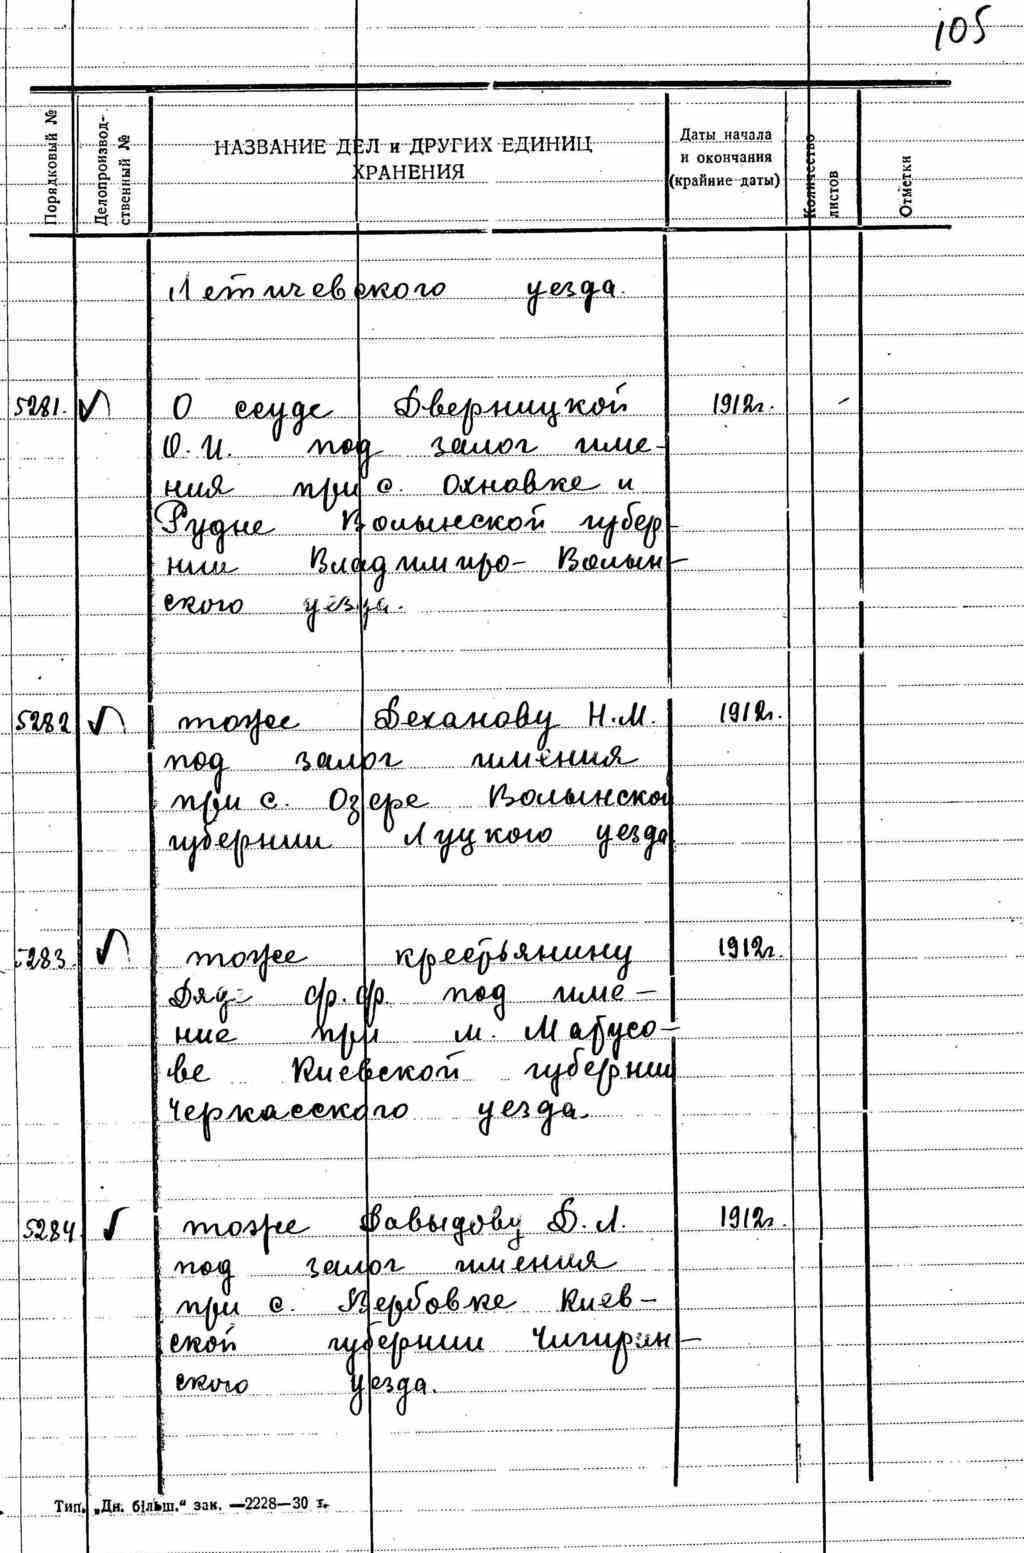 105
Порядковый №
Делопроизвод-
ственный №
НАЗВАНИЕ ДЕЛ и ДРУГИХ ЕДИНИЦ
ХРАНЕНИЯ
Даты начала
и окончания
(крайние даты)
Количество
листов
Отметки
Летичевского уезда.
5281. О ссуде Дверницкой 1912г. -
О.И. под залог име-
ния при с. Охновке и
Рудне Волынской губер-
нии Владимиро-Волын-
ского уезда.
5282 тоже Деханову Н.М. 1912г.
под залог имения
при с. Озере Волынской
губернии Луцкого уезда
5283. тоже крестьянину 1912г.
Ф.Ф. под име-
ние при м. Матусо-
ве Киевской губернии
Черкасского уезда.
5284 тоже Давыдову Д.Л. 1912г.
под залог имения
при с. Вербовке Киев-
ской губернии Чигирин-
ского уезда.
Тип. „Дн. більш.“ зак. —2228—30 г.